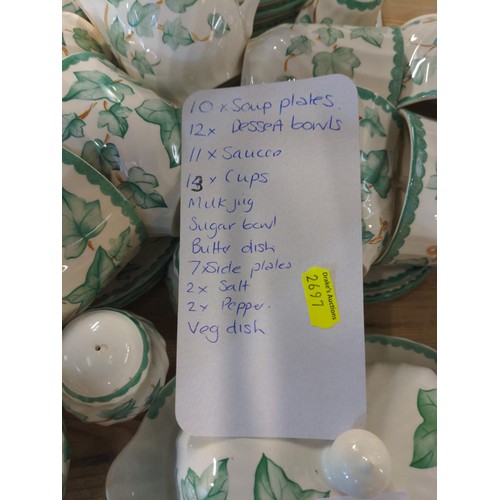 10 x Soup plates.
12 x Dessert bowls
11 x Saucer
13 x Cups
Milk jug
Sugar bowl
Butter dish
7 x Side plates
2 x Salt
2 x Pepper.
Veg dish
Drake's Auctions
2697